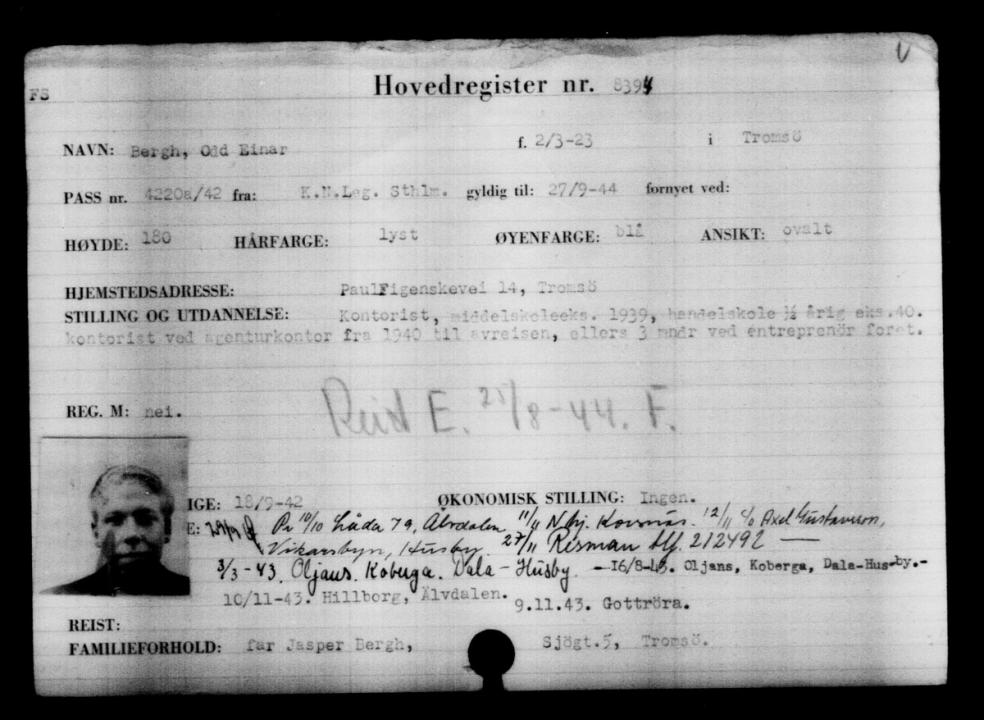 V
Hovedregister nr. 8394
FS
NAVN: Bergh, Odd Einar f. 2/3-23 i Tromsö
PASS nr. 4220a/42 fra: K.N.Leg. Sthlm. gyldig til: 27/9-44 fornyet ved:
HØYDE: 180 HÅRFARGE: lyst ØYENFARGE: blå ANSIKT: ovalt
HJEMSTEDSADRESSE: PaulFigenskevei 14, Tromsö
STILLING OG UTDANNELSE: Kontorist, middelskoleeks. 1939, handelskole ½ årig eks.40.
kontorist ved agenturkontor fra 1940 til avreisen, ellers 3 mndr ved entreprenör foret.
REG. M: nei.
Reist E. 25/8-44. F.
IGE: 18/9-42 ØKONOMISK STILLING: Ingen.
E: Pr 10/10 Låda 79, Älvdalen 11/11 Kovsnäs. 12/11 c/o Axel Gustavsson,
Vikarsbyn, Husby. 27/11 Resman tlf. 212492 —
3/3-43. Oljans. Koberga. Dala-Husby. -16/8-43. Oljans, Koberga, Dala-Husby.-
10/11-43. Hillborg, Älvdalen. 9.11.43. Gottröra.
REIST:
FAMILIEFORHOLD: far Jasper Bergh, Sjögt.5, Tromsö.